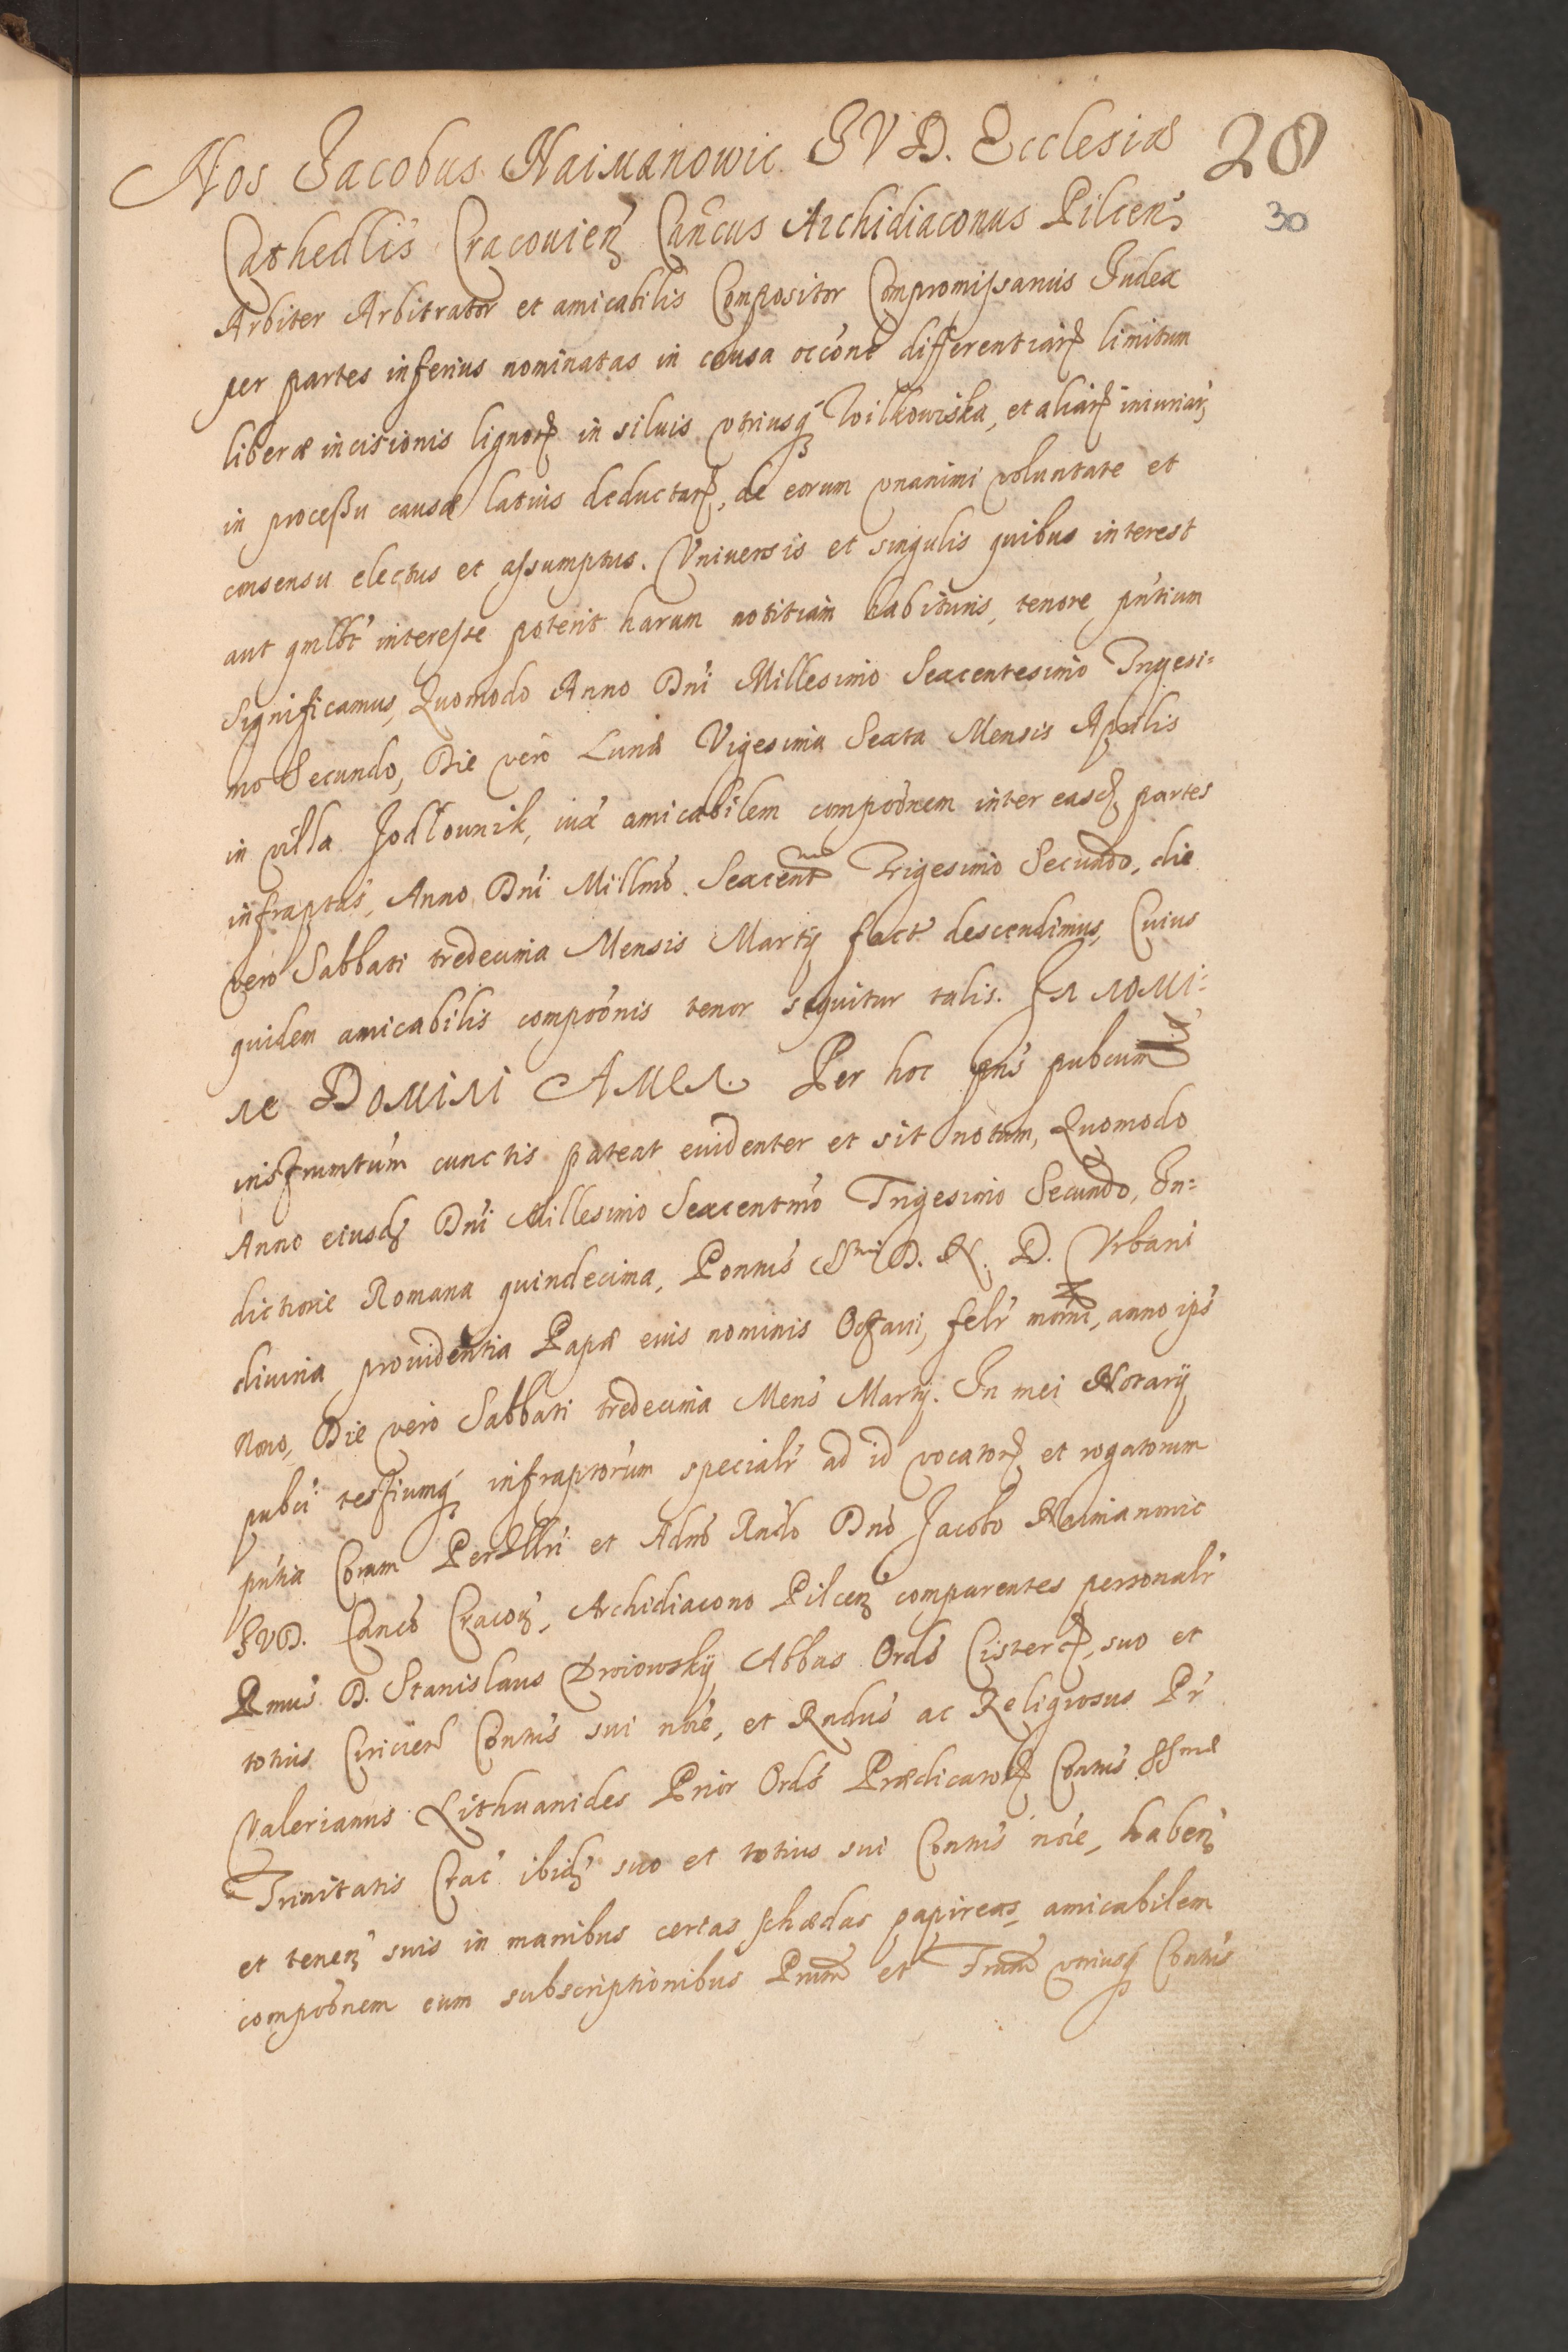 Nos Jacobus Naimanowic JVD. Ecclesiæ 28
30
Cathedlis Cracouień Cancus Archidiaconus Pilceń
Arbiter Arbitrator et amicabilis Compositor Compromissarius Iudex
per partes inferius nominatas in causa occone differentiarꝝ limitum
liberæ incisionis lignorꝝ in siluis vtriusq́ꝫ Wilkowiska, et aliarꝝ iniuriarꝝ
in processu causæ latius deductarꝝ, de eorum vnanimi voluntate et
consensu electus et assumptus. Vniuersis et singulis quibus interest
aut qmlbt interesse poterit harum notitiam habituris, tenore pñtium
Significamus, Quomodo Anno Dni Millesimo Sexcentesimo Trigesi=
mo Secundo, Die vero Lunæ Vigesima Sexta Mensis Aprilis
in villa Jodłownik, iuxa amicabilem compoõnem inter easdꝫ partes
infraptas, Anno Dni Millmo Sexcentmo Trigesimo Secundo, die
vero Sabbati tredecima Mensis Martÿ fact descendimus, Cuius
quidem amicabilis compoõnis tenor sequitur talis. In nomi=
ne Domini Amen. Per hoc pns pubcum
instrumtum cunctis pateat euidenter et sit notum, Quomodo
Anno eiusdꝫ Dni Millesimo Sexcentmo Trigesimo Secundo, In=
dictione Romana quindecima, Pontus Smi D. N. D. Vrbani
diuina prouidentia Papæ eius nominis Octaui, felr morni, anno ips
Nono, Die vero Sabbati tredecima Mens Martÿ. In mei Notarÿ
pubci testiumq́ꝫ infraptorum specialr ad id vocatorꝝ et rogatorum
pñtia Coram Perillri et Admo Rndo Dno Jacobo Naimanowic
JVD. Canco Cracoń, Archidiacono Pilceń comparentes personalr
Rmus D. Stanislaus Droiowskÿ Abbas Ords Cistercꝝ, suo et
totius Ciricień Contus sui noie, et Rndus ac Religiosus Pr
Valerianus Lithuanides Prior Ords Prædicatorꝝ Contus SSmæ
Trinitatis Crac ibidꝫ suo et totius sui Contus noie, habeń
et teneń suis in manibus certas schædas papireas, amicabilem
compoõnem cum subscriptionibus Prum et Frum vtriusq́ꝫ Contus